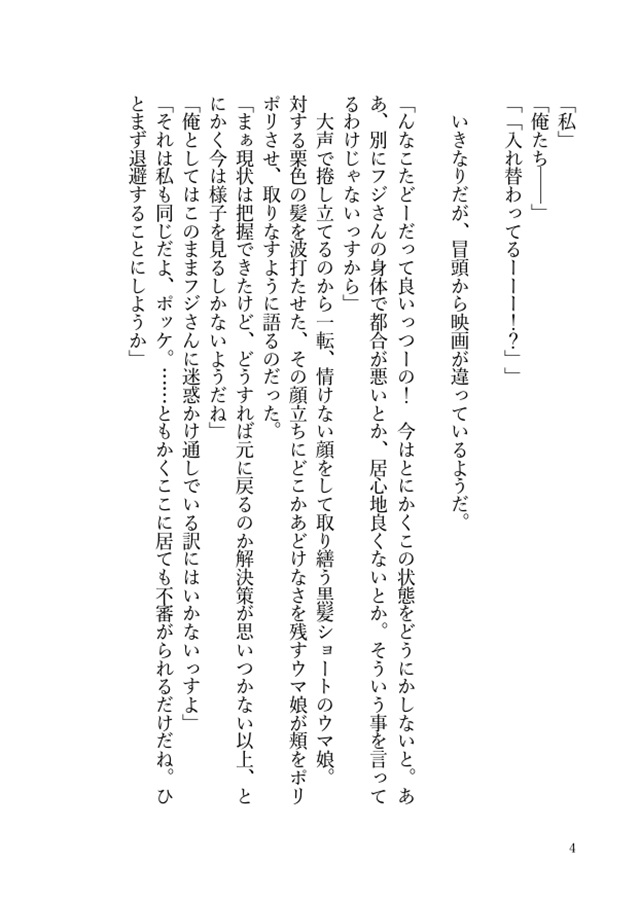 「私」
「俺たち――」
「「入れ替わってるーーー！？」」
いきなりだが、冒頭から映画が違っているようだ。
「んなこたどーだって良いっつーの！　今はとにかくこの状態をどうにかしないと。あ
あ、別にフジさんの身体で都合が悪いとか、居心地良くないとか。そういう事を言って
るわけじゃないっすから」
大声で捲し立てるのから一転、情けない顔をして取り繕う黒髪ショートのウマ娘。
対する栗色の髪を波打たせた、その顔立ちにどこかあどけなさを残すウマ娘が頬をポリ
ポリさせ、取りなすように語るのだった。
「まぁ現状は把握できたけど、どうすれば元に戻るのか解決策が思いつかない以上、と
にかく今は様子を見るしかないようだね」
「俺としてはこのままフジさんに迷惑かけ通しでいる訳にはいかないっすよ」
「それは私も同じだよ、ポッケ。……ともかくここに居ても不審がられるだけだね。ひ
とまず退避することにしようか」
4